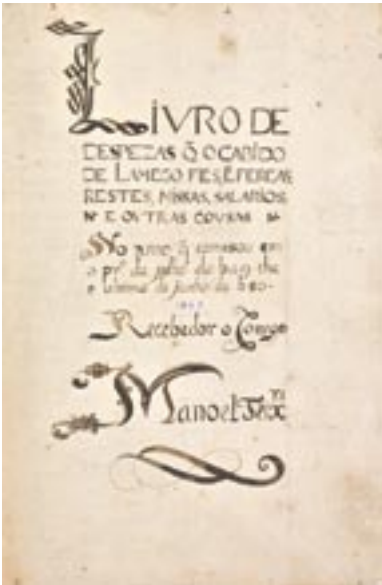 LIVRO DE
DESPEZAS Q̃ O CABIDO
DE LAMEGO FES, E FEREAS
RESTES, MISSAS, SALARIOS
E OUTRAS COUSAS
No anno q̃ comesou em
o pr.º de julho de
de junho de
Recebedor o Conego
Manoel Teix.ra